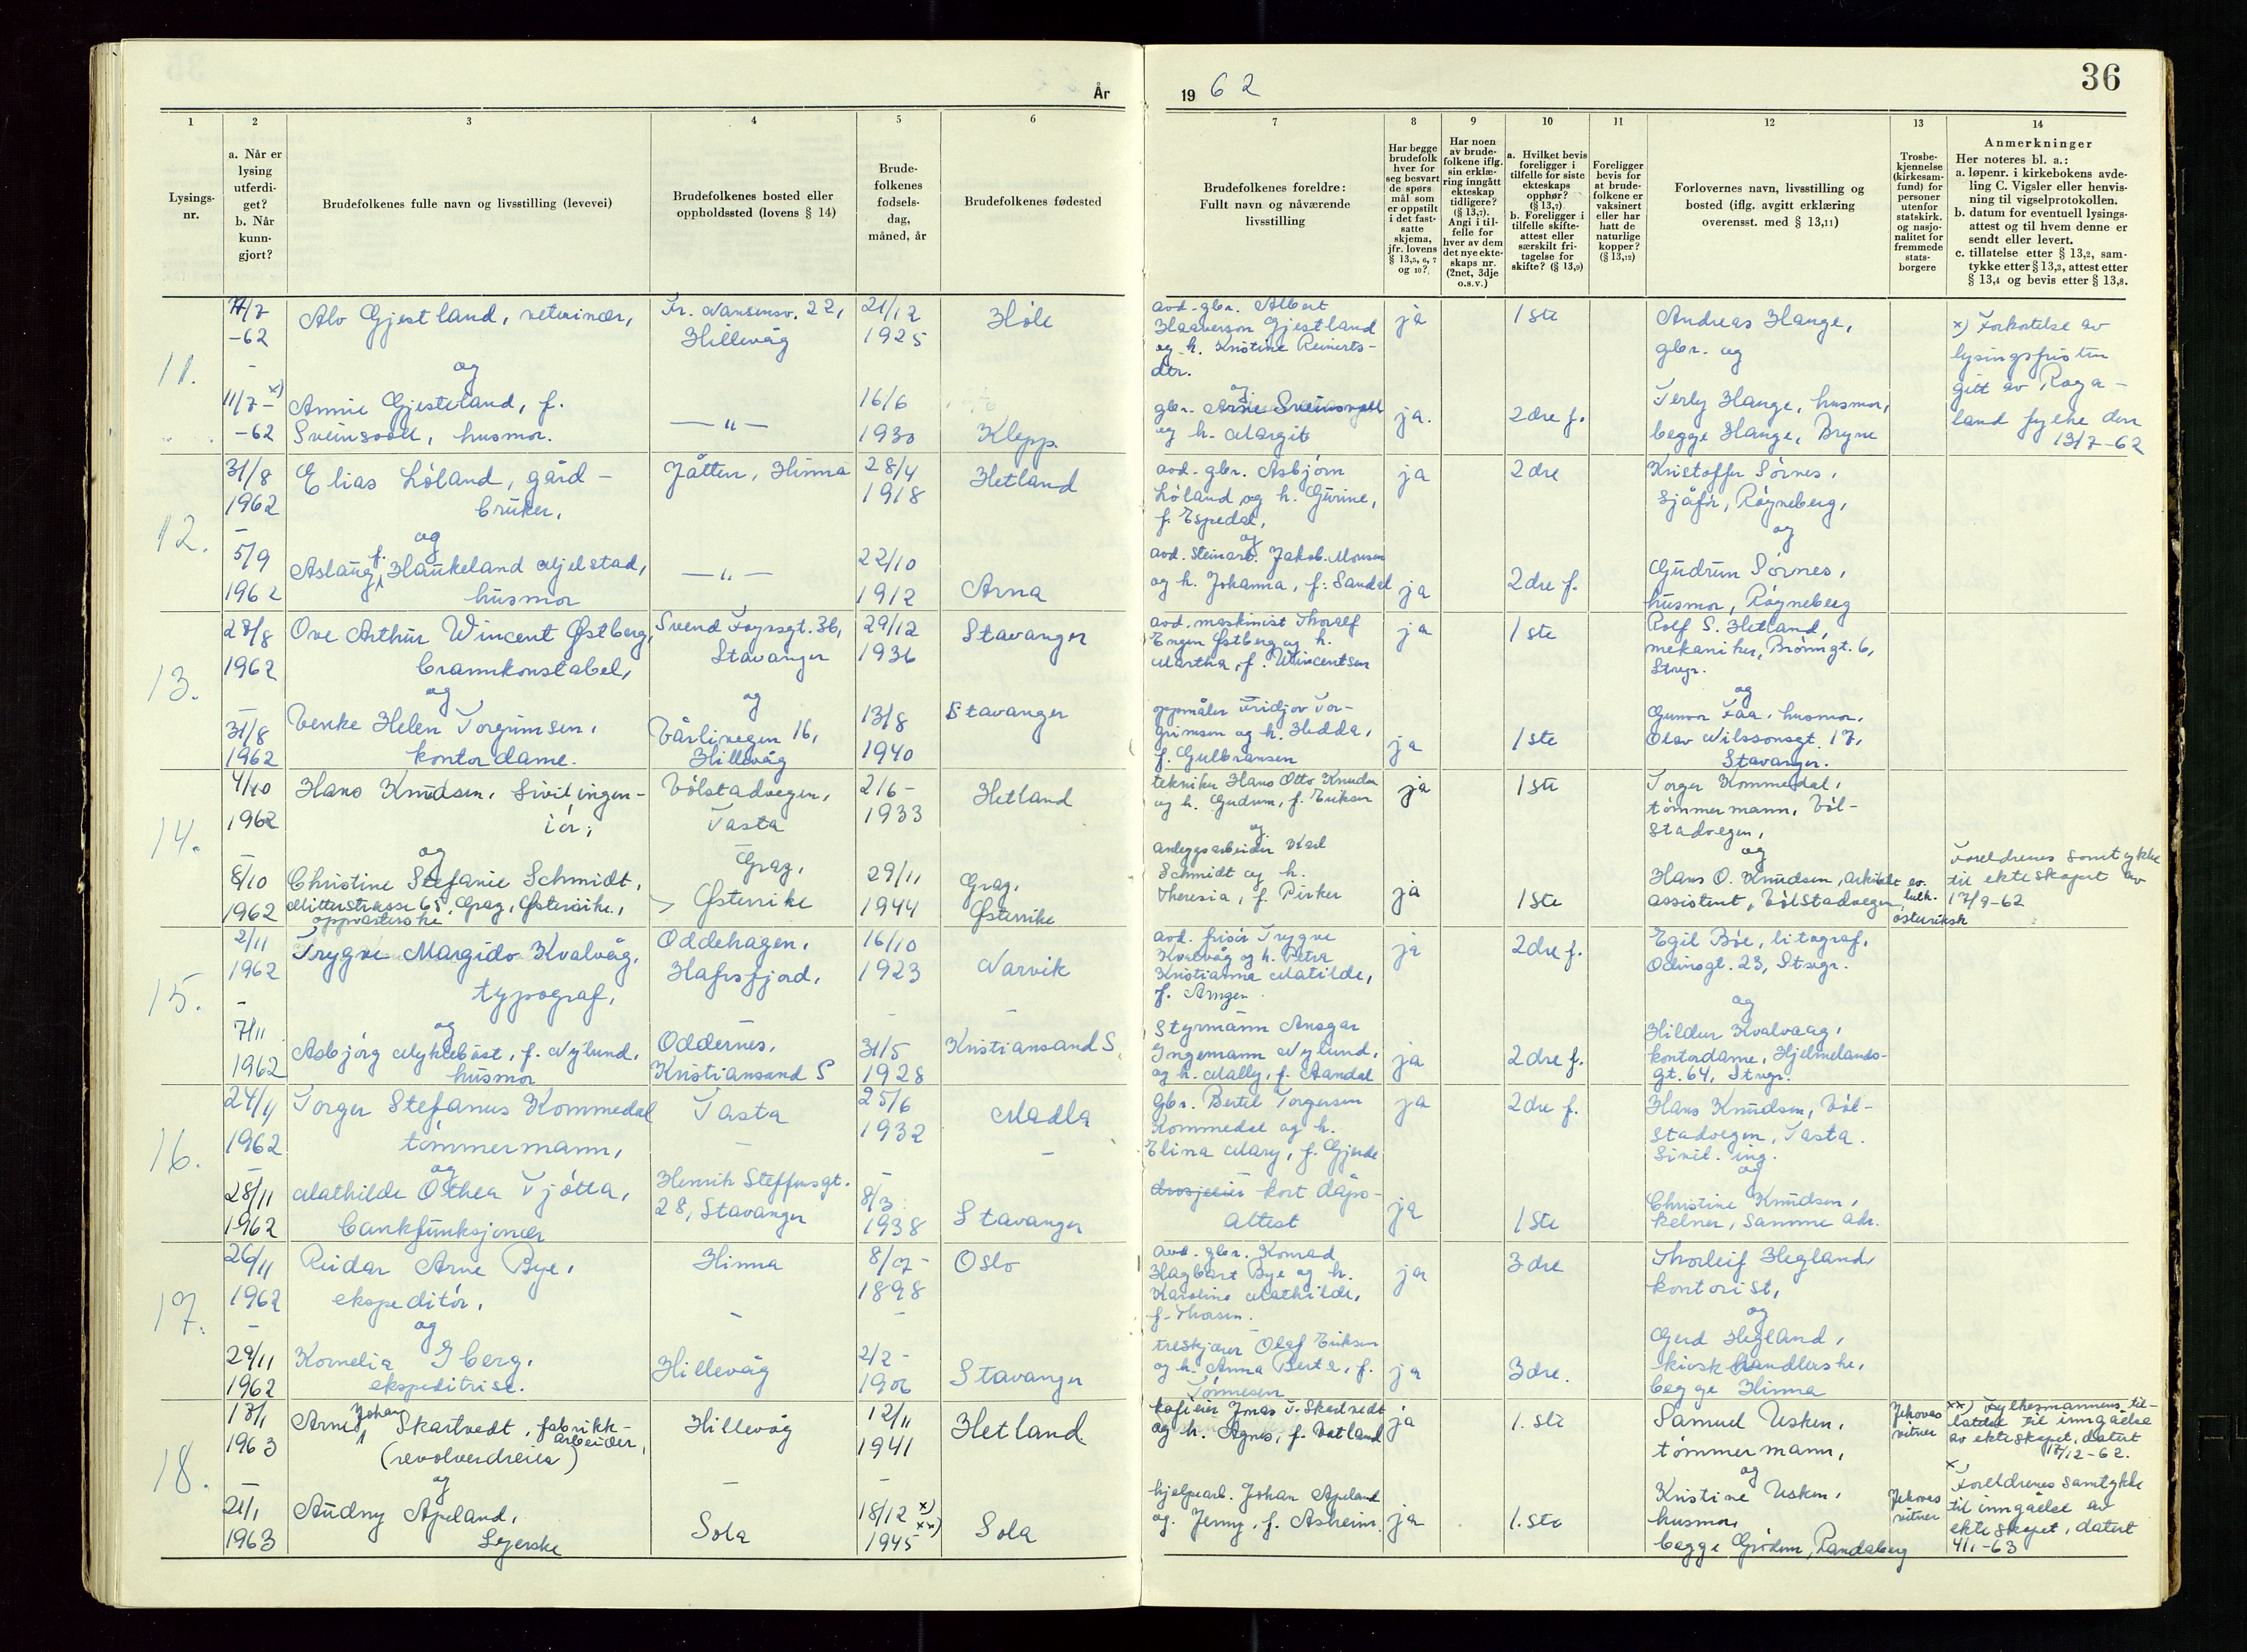 År
19 62
36
1
2
3
4
5
6
7
8
9
10
11
12
13
14
Lysings-
nr.
a. Når er
lysing
utferdi-
get?
b. Når
kunn-
gjort?
Brudefolkenes fulle navn og livsstilling (levevei)
Brudefolkenes bosted eller
oppholdssted (lovens § 14)
Brude-
folkenes
fødsels-
dag,
måned, år
Brudefolkenes fødested
Brudefolkenes foreldre:
Fullt navn og nåværende
livsstilling
Har begge
brudefolk
hver for
seg besvart
de spørs
mål som
er oppstilt
i det fast-
satte
skjema,
jfr. lovens
§ 13,5, 6, 7
og 10?
Har noen
av brude-
folkene iflg.
sin erklæ-
ring inngått
ekteskap
tidligere?
(§ 13,7).
Angi i til-
felle for
hver av dem
det nye ekte-
skaps nr.
(2net, 3dje
o.s.v.)
a. Hvilket bevis
foreligger i
tilfelle for siste
ekteskaps
opphør?
(§ 13,7)
b. Foreligger i
tilfelle skifte-
attest eller
særskilt fri-
tagelse for
skifte? (§ 13,9)
Foreligger
bevis for
at brude-
folkene er
vaksinert
eller har
hatt de
naturlige
kopper?
(§ 13,12)
Forlovernes navn, livsstilling og
bosted (iflg. avgitt erklæring
overensst. med § 13,11)
Trosbe-
kjennelse
(kirkesam-
fund) for
personer
utenfor
statskirk.
og nasjo-
nalitet for
fremmede
stats-
borgere
Anmerkninger
Her noteres bl. a.:
a. løpenr. i kirkebokens avde-
ling C. Vigsler eller henvis-
ning til vigselprotokollen.
b. datum for eventuell lysings-
attest og til hvem denne er
sendt eller levert.
c. tillatelse etter § 13,2, sam-
tykke etter § 13,3, attest etter
§ 13,4 og bevis etter § 13,8.
11.
-62
-
11/7- x)
-62
Alv Gjestland, veterinær,
og
Annie Gjesteland, f.
Sveinsvoll, husmor.
Fr. Nansensv. 22,
Hillevåg
— " —
21/12
1925
16/6
1930
Høle
Klepp.
avd. gbr. Albert
Haaverson Gjestland
og h. Kristine Reinerts-
dtr.
og
gbr. Arne Sveinsvoll
og h. Margit
ja
ja.
1ste
2dre f.
Andreas Hauge,
gbr. og
Terly Hauge, husmor,
begge Hauge, Bryne
x) Forkortelse av
lysingsfristen
gitt av Roga-
land fylke den
13/7-62
12.
31/8
1962
-
5/9
1962
Elias Løland, gård-
bruker,
og
Aslaug f. Haukeland Mjelstad,
husmor
Jåtten, Hinna
— " —
28/4
1918
22/10
1912
Hetland
Arna
avd. gbr. Asbjørn
Løland og h. Gurine,
f. Espedal,
og
avd. steinarb. Jakob Monsen
og h. Johanna, f. Sandal
ja
ja
2dre
2dre f.
Kristoffer Sørnes,
sjåfør, Røyneberg,
og
Gudrun Sørnes,
husmor, Røyneberg
13.
28/8
1962
-
31/8
1962
Ove Arthur Wincent Østberg,
brannkonstabel,
og
Venke Helen Torgrimsen,
kontordame.
Svend Foynsgt. 36,
Stavanger
og
Vårlivegen 16,
Hillevåg
29/12
1936
13/8
1940
Stavanger
Stavanger
avd. maskinist Thoralf
Engen Østberg og h.
Martha, f. Wincentsen
oppmåler Fridjov Tor-
grimsen og h. Hedda,
f. Gulbransen
ja
ja
1ste
1ste
Rolf S. Hetland,
mekaniker, Brønngt. 6,
Stvgr.
og
Gunvor Faa, husmor,
Olav Nilssonsgt. 17,
Stavanger.
14.
4/10
1962
-
8/10
1962
Hans Knudsen, sivilingen-
iør,
og
Christine Stefanie Schmidt,
Mitterstrasse 65, Graz, Østerrike,
oppvarterske
Vålstadvegen,
Tasta
-
Graz,
Østerrike
2/6-
1933
29/11
1944
Hetland
Graz,
Østerrike
tekniker Hans Otto Knudsen
og h. Gudrun, f. Eriksen
og
anleggsarbeider Karl
Schmidt og h.
Theresia, f. Pirker
ja
ja
1ste
1ste
Torger Kommedal,
tømmermann, Vål-
stadvegen,
og
Hans O. Knudsen, arkitekt
assistent, Vålstadvegen
ev.
luth.
østerriksk
Foreldrenes samtykke
til ekteskapet av
17/9-62
15.
2/11
1962
-
7/11
1962
Trygve Margido Kvalvåg,
typograf,
og
Asbjørg Myklebust, f. Nylund,
husmor
Oddehagen,
Hafrsfjord,
Oddernes,
Kristiansand S
16/10
1923
-
31/5
1928
Narvik
-
Kristiansand S.
avd. frisør Trygve
Kvalvåg og h. Petra
Kristianna Matilde,
f. Arngen
Styrmann Ansgar
Ingemann Nylund,
og h. Mally, f. Aandal
ja
ja
2dre f.
2dre f.
Egil Bøe, litograf,
Odinsgt. 23, Stvgr.
og
Hildur Kvalvaag,
kontordame, Hjelmelands-
gt. 64, Stvgr.
16.
24/11
1962
-
28/11
1962
Torger Stefanus Kommedal
tømmermann,
og
Mathilde Othea Tjøtta,
bankfunksjonær
Tasta
-
Henrik Steffensgt.
28, Stavanger
25/6
1932
-
8/3
1938
Madla
-
Stavanger
gbr. Bertel Torgersen
Kommedal og h.
Elina Mary, f. Gjerde
drosjeeier kort dåps-
attest
ja
ja
2dre f.
1ste
Hans Knudsen, Vål-
stadvegen, Tasta.
sivil. ing.
og
Christine Knudsen,
kelner, samme adr.
17.
26/11
1962
-
29/11
1962
Reidar Arne Bye,
ekspeditør,
og
Kornelia Iberg,
ekspeditrise.
Hinna
-
Hillevåg
1898
-
2/2-
1906
Oslo
Stavanger
avd. gbr. Konrad
Hagbart Bye og h.
Karoline Mathilde,
f. Thorsen.
treskjærer Olaf Eriksen
og h. Anna Berta, f.
Tønnesen
ja
ja
3dre
3dre.
Thorleif Hegland
kontorist,
og
Gerd Hegland,
kioskhandlerske,
begge Hinna
18.
17/1
1963
-
21/1
1963
Arne Johan Skartvedt, fabrikk-
arbeider,
(revolverdreier)
og
Audny Apeland,
Syerske
Hillevåg
-
Sola
12/11
1941
-
18/12 x)
xx)
1945
Hetland
Sola
kafeeier Jonas T. Skartvedt
og h. Agnes, f. Vatland
hjelpearb. Johan Apeland
og Jenny, f. Asheim.
ja
ja
1.ste
1.ste
Samuel Usken,
tømmermann,
og
Kristine Usken,
husmor,
begge Grødem, Randaberg
Jehovas
vitner
Jehovas
vitner
xx) Fylkesmannens til-
latelse til inngåelse
av ekteskapet, datert
17/12-62.
x
Foreldrenes samtykke
til inngåelse av
ekteskapet, datert
4/1-63